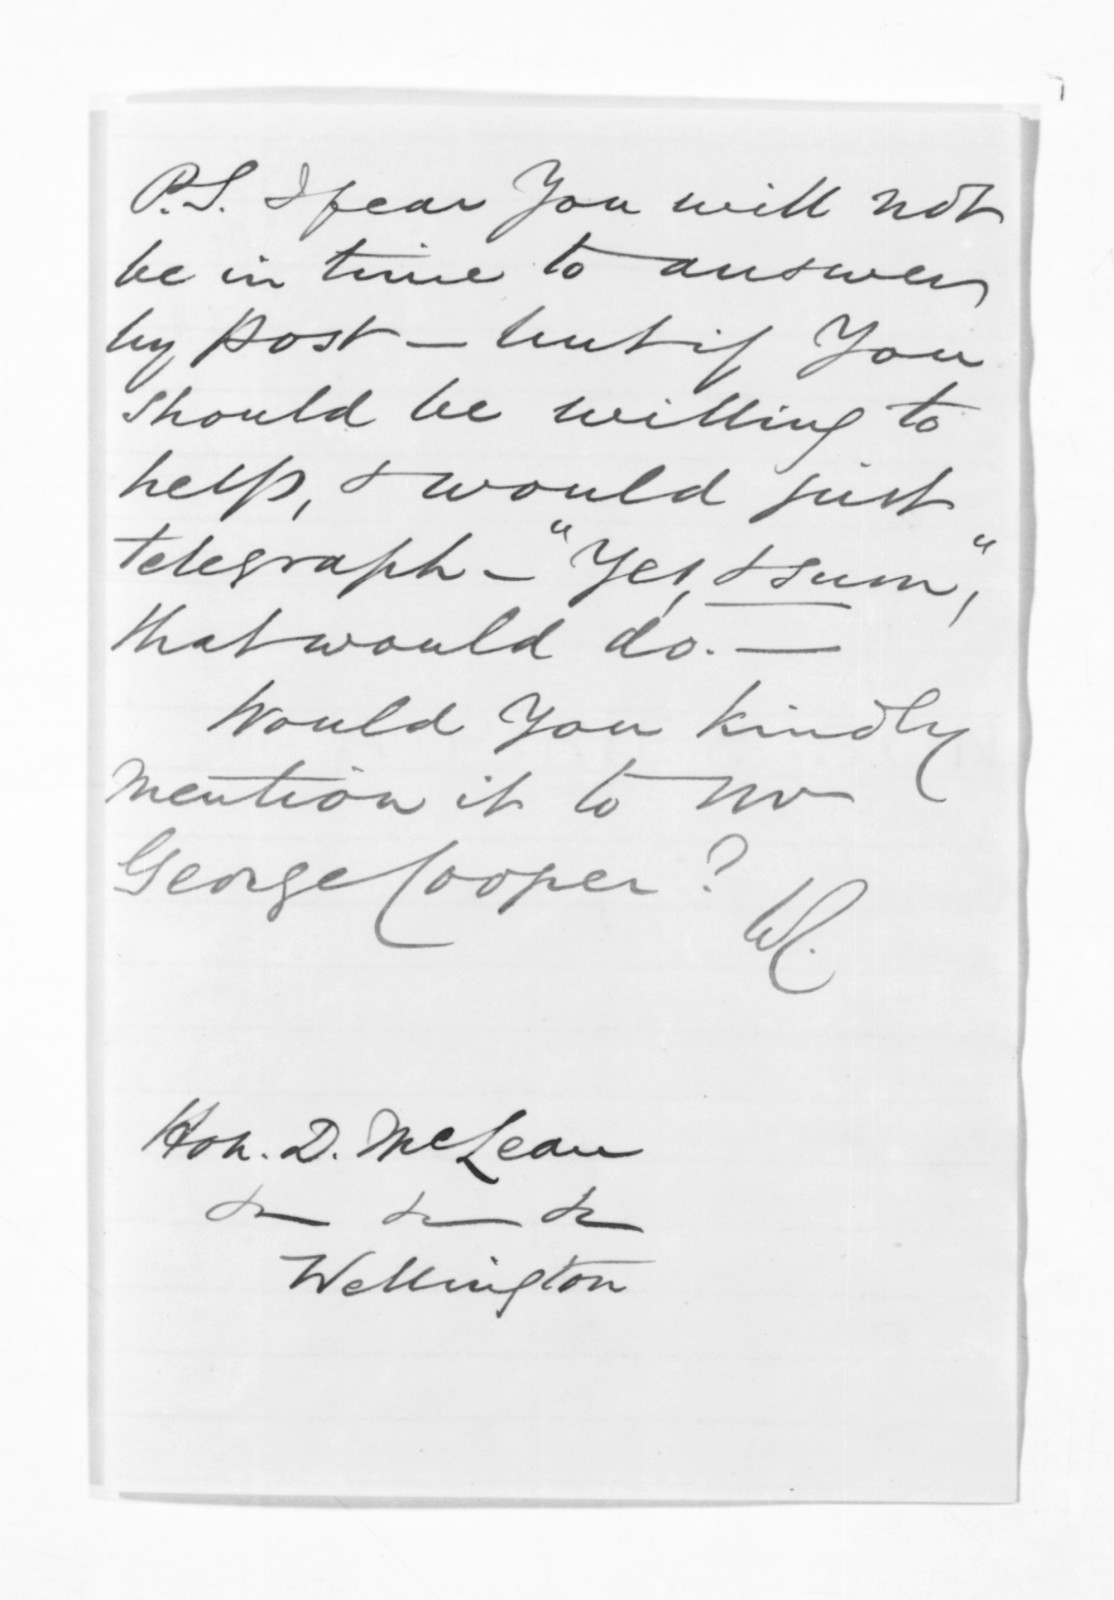 P.S. I fear You will not
be in time to answer
by post — but if You
should be willing to
help, & would just
telegraph — "Yes, & sum",
that would do. —
Would You kindly
mention it to Mr
George Cooper?
WC.
Hon. D. McLean
&c &c &c
Wellington